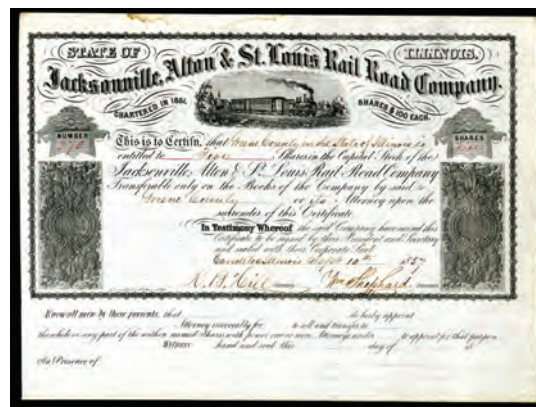 STATE OF ILLINOIS,
Jacksonville, Alton & St. Louis Rail Road Company.
CHARTERED IN 1851. SHARES $100 EACH.
NUMBER SHARES
This is to Certify, that Greene County in the State of Illinois is
entitled to Shares in the Capital Stock of the
Jacksonville, Alton & St. Louis Rail Road Company
Transferable only on the Books of the Company by said
Greene County or its Attorney upon the
surrender of this Certificate.
In Testimony Whereof the said Company have caused this
Certificate to be signed by their President and Secretary
and sealed with their Corporate Seal
Illinois Sept 10th 1857
Wm Shephard
Know all men by these presents, that do hereby appoint
Attorney irrevocably for to sell and transfer to
the whole or any part of the within named Shares with power one or more Attorneys under to appoint for that purpose.
Witness hand and seal this day of 18
In Presence of